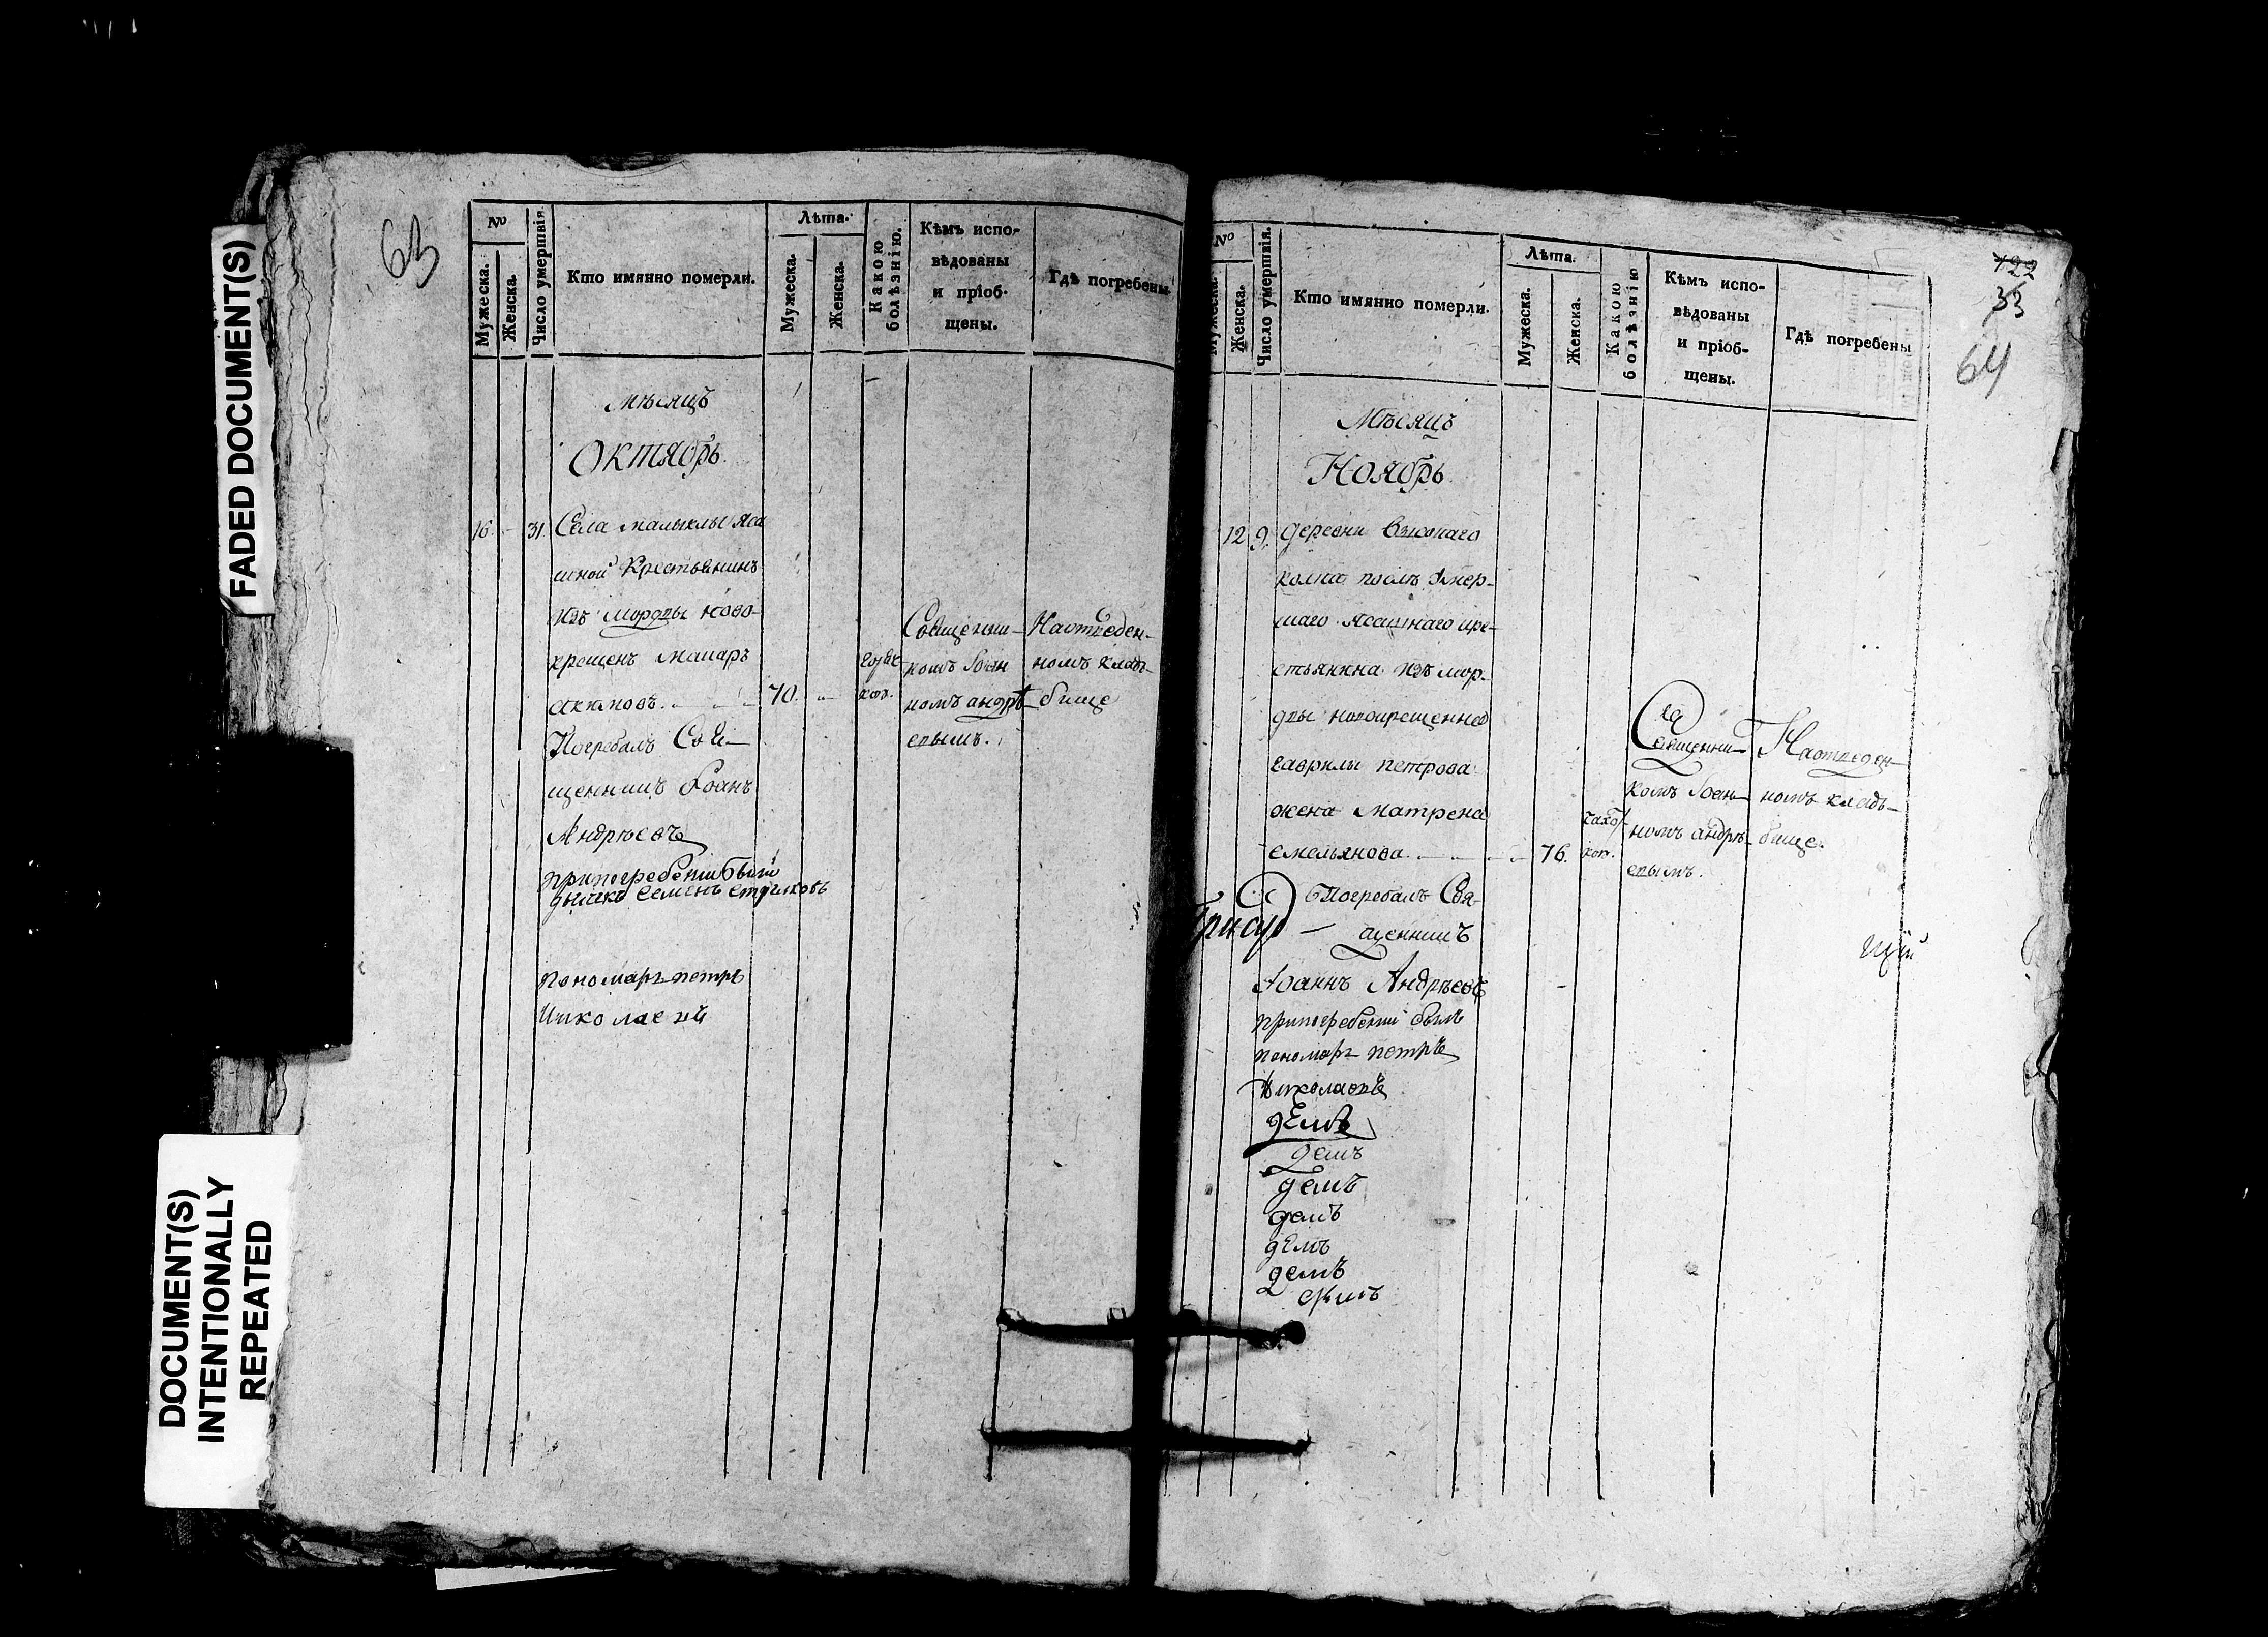 FADED DOCUMENT(S)
DOCUMENT(S)
INTENTIONALLY
REPEATED
63
№
Мужеска.
Женска.
Число умершвія.
Кто имянно померли.
Лѣта.
Мужеска.
Женска.
Какою
болѣзнію.
Кѣмъ испо-
вѣдованы
и пріоб-
щены.
Гдѣ погребены.
мѣсяцъ
Октябрь.
16 - 31. Села малыклы яса
шной крестьянинъ
изъ мордвы ново-
крещенъ макаръ
70.
Погребалъ Свя-
щенникъ Іоанъ
Андрѣевъ
при погребеніи были
дьячкъ семенъ
пономарь петръ
Николаевъ
Священни-
комъ Іоан
номъ андрѣ-
евымъ.
На отведен-
номъ клад-
бище
122
33
64
№
Мужеска.
Женска.
Число умершвія.
Кто имянно померли.
Лѣта.
Мужеска.
Женска.
Какою
болѣзнію
Кѣмъ испо-
вѣдованы
и пріоб-
щены.
Гдѣ погребены
Мѣсяцъ
Ноябрь.
12 9. деревни
колка послѣ умер-
шаго ясашнаго кре-
стьянина изъ мор-
двы новокрещенна
гаврилы петрова
жена матрена
емельянова. 76.
Погребалъ Свя-
щенникъ
Іоаннъ Андрѣевъ
при погребеніи былъ
пономарь петръ
Николаевъ
Священни-
комъ Іоан-
номъ андрѣ-
евымъ.
На отведен-
номъ клад-
бище.